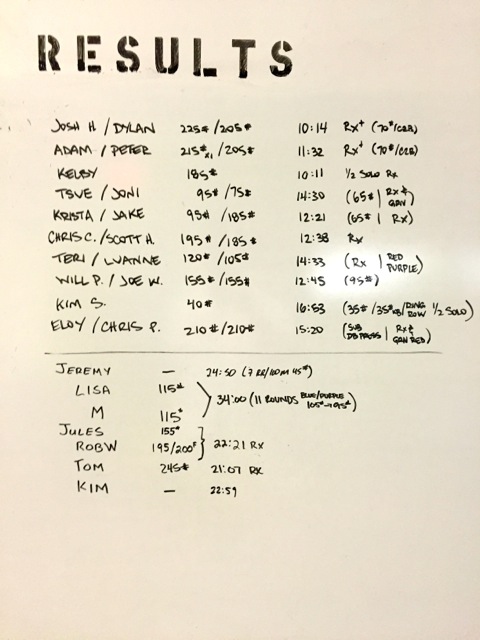 RESULTS
JOSH H. / DYLAN 225# / 205# 10:14 Rx+ (70#/C2B)
ADAM / PETER 215#x1 / 205# 11:32 Rx+ (70#/C2B)
KELBY 185# 10:11 1/2 SOLO Rx
/ JONI 95# / 75# 14:30 (65# | Rx &
KRISTA / JAKE 95# / 185# 12:21 (65# | Rx)
CHRIS C. / SCOTT H. 195# / 185# 12:38 Rx
TERI / LUANNE 120# / 105# 14:33 (Rx | RED PURPLE)
WILL P. / JOE W. 155# / 155# 12:45 (95#)
KIM S. 40# 16:53 (35# / 35# KB / RING ROW 1/2 SOLO)
ELOY / CHRIS P. 210# / 210# 15:20 (SUB DB PRESS | Rx & GRN RED)
JEREMY — 24:50 (7 RR/110M 45#)
LISA 115# 34:00 (11 ROUNDS BLUE/PURPLE 105# → 95#)
M 115#
JULES 155#
ROB W 195/200# 22:21 Rx
TOM 245# 21:07 Rx
KIM — 22:59